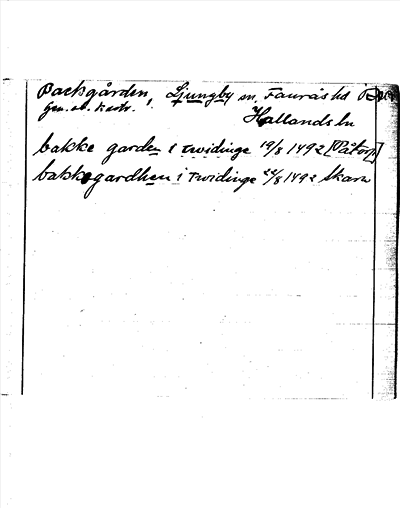 Backgården, Ljungby sn, Faurås hd
Gen. st. kart.
Hallands ln
bakke garden i twidinge 19/8 1492
bakkegardhen i twidinge 22/8 1492 Skara